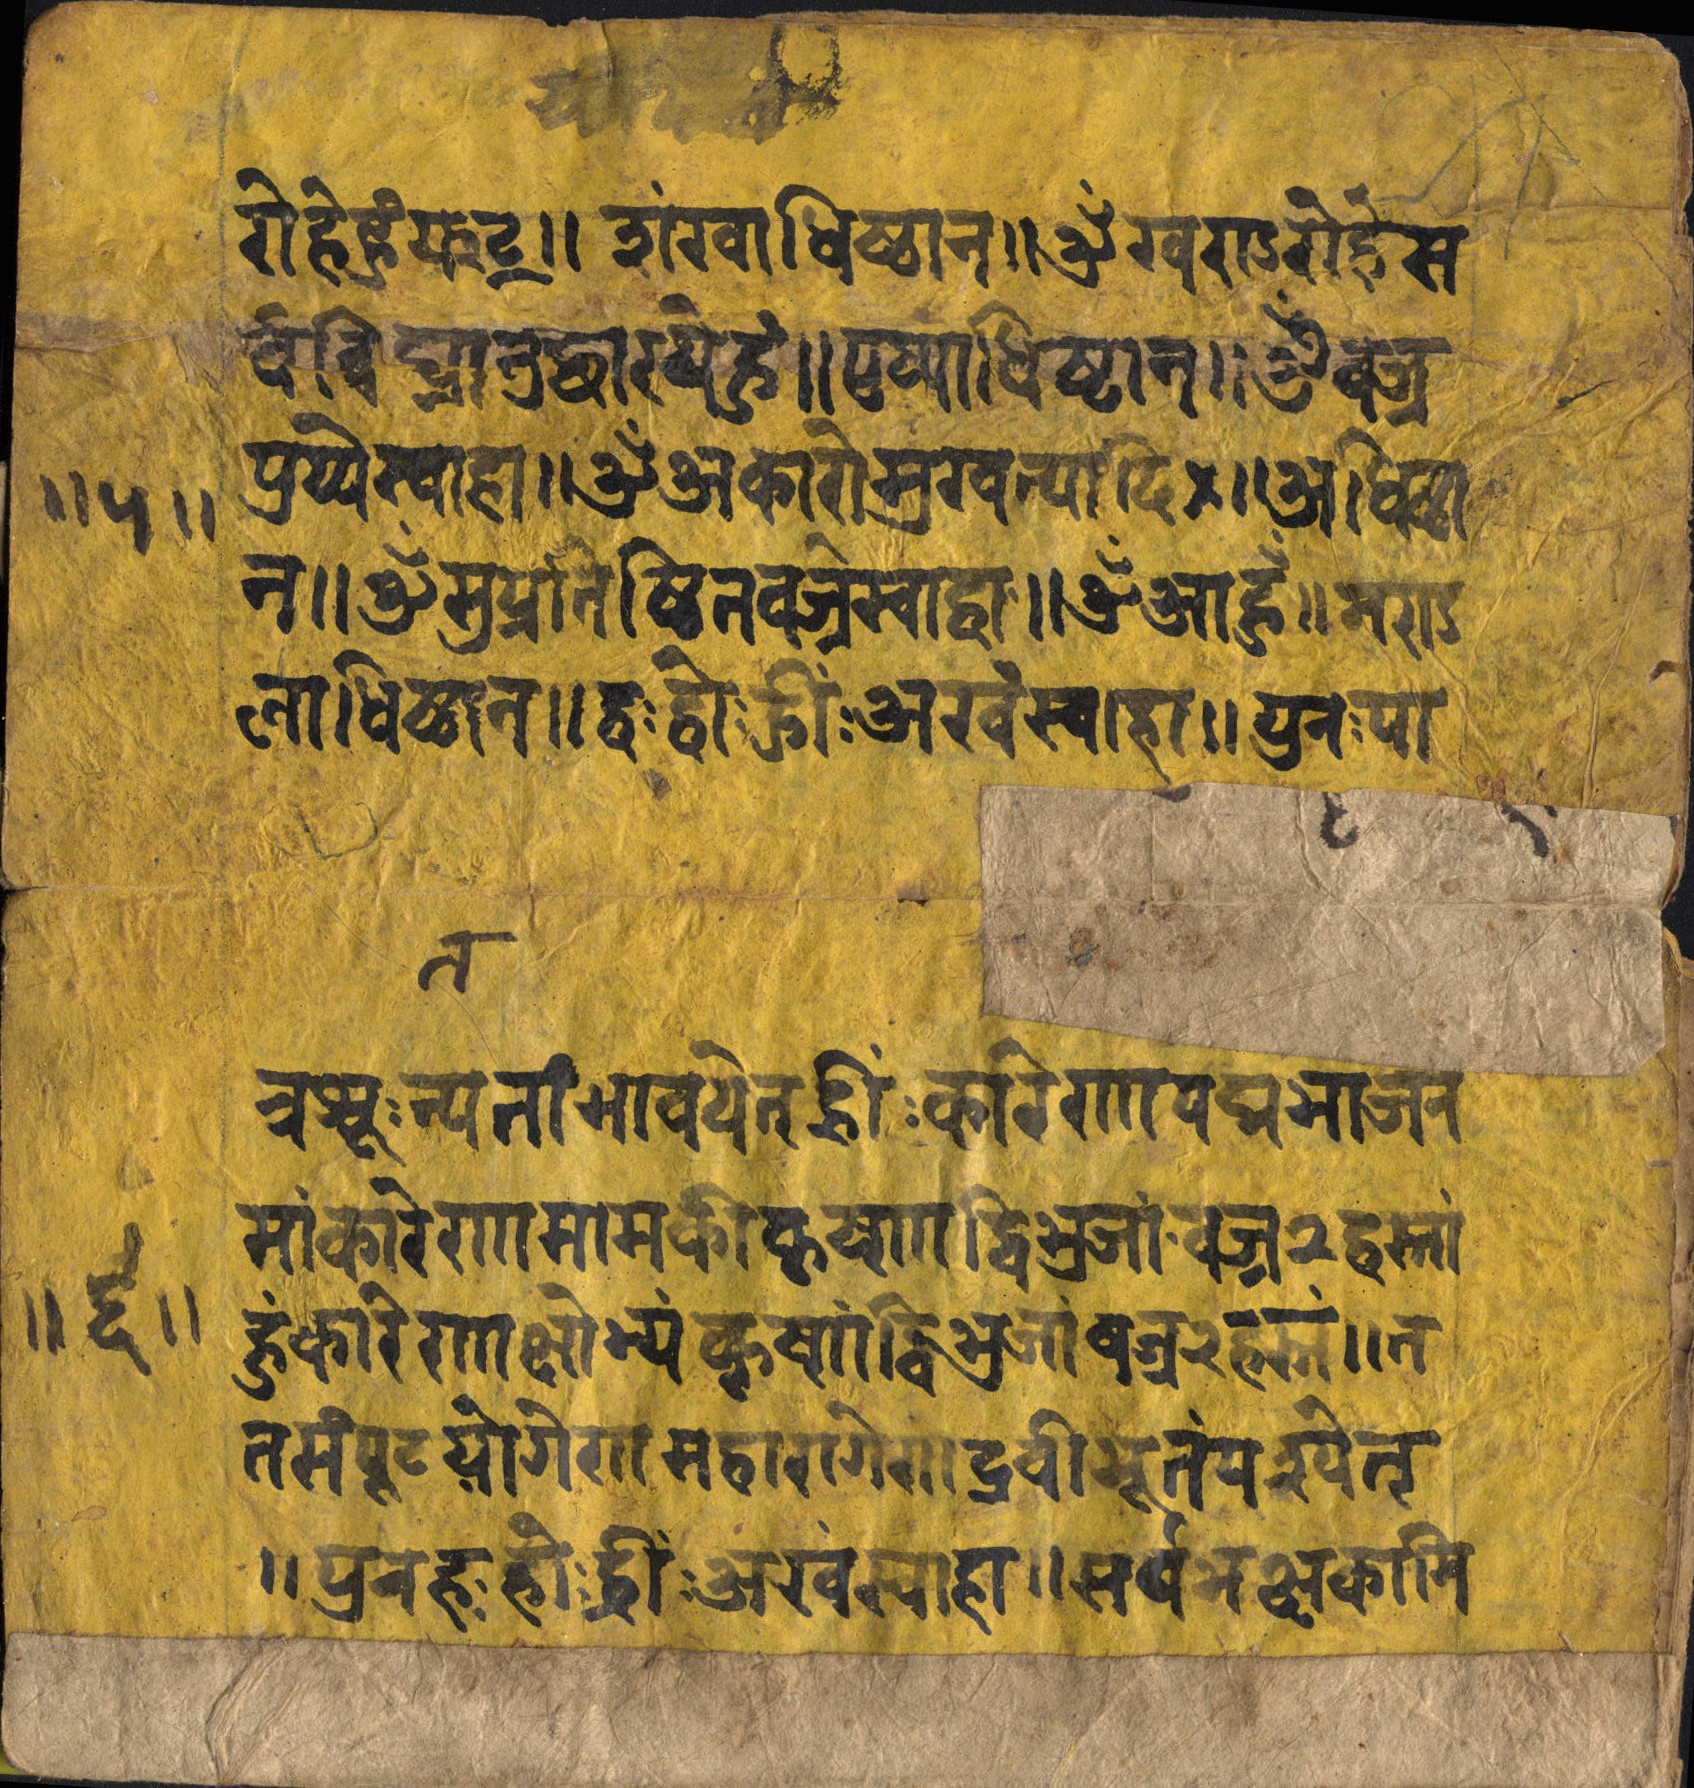 रोहे हुं फट् ॥ शंखाधिष्ठान ॥ ॐ खराऽरोहे स
र्वविघ्नानुच्छारय हुं ॥ पुष्पाधिष्ठान ॥ ॐ वज्र
पुष्पे स्वाहा ॥ ॐ अकारो मुखन्यादि × ॥ अधिष्ठा
॥ ५ ॥
न ॥ ॐ सुप्रतिष्ठितवज्रे स्वाहा ॥ ॐ आ हुँ ॥
लाधिष्ठान ॥ ह्रः हो ः ह्रीं ः अ खं स्वाहा ॥ पुनः पा
त
त्रशूःन्यतां भावयेत् ह्रीं ः कारेण पद्मभाजन
मांकारेण मामकी कृष्णा द्विभुजां वज्र २ हस्तां
हुंकारेण क्षोभ्यं कृष्णं द्विभुजां वज्र २ हस्तं ॥ त
॥ ६ ॥
त संपूटयोगेण महारागेण द्रवीभूतं पश्येत्
॥ पुन हः हो ः ह्रीं ः अ खं स्वाहा ॥ सर्वभक्षकामि